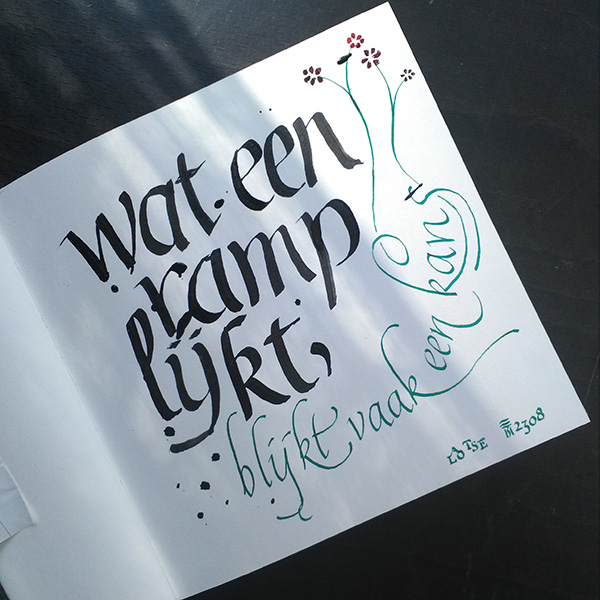 wat een
ramp
lijkt,
blijkt vaak een kans
LAOTSE M2308